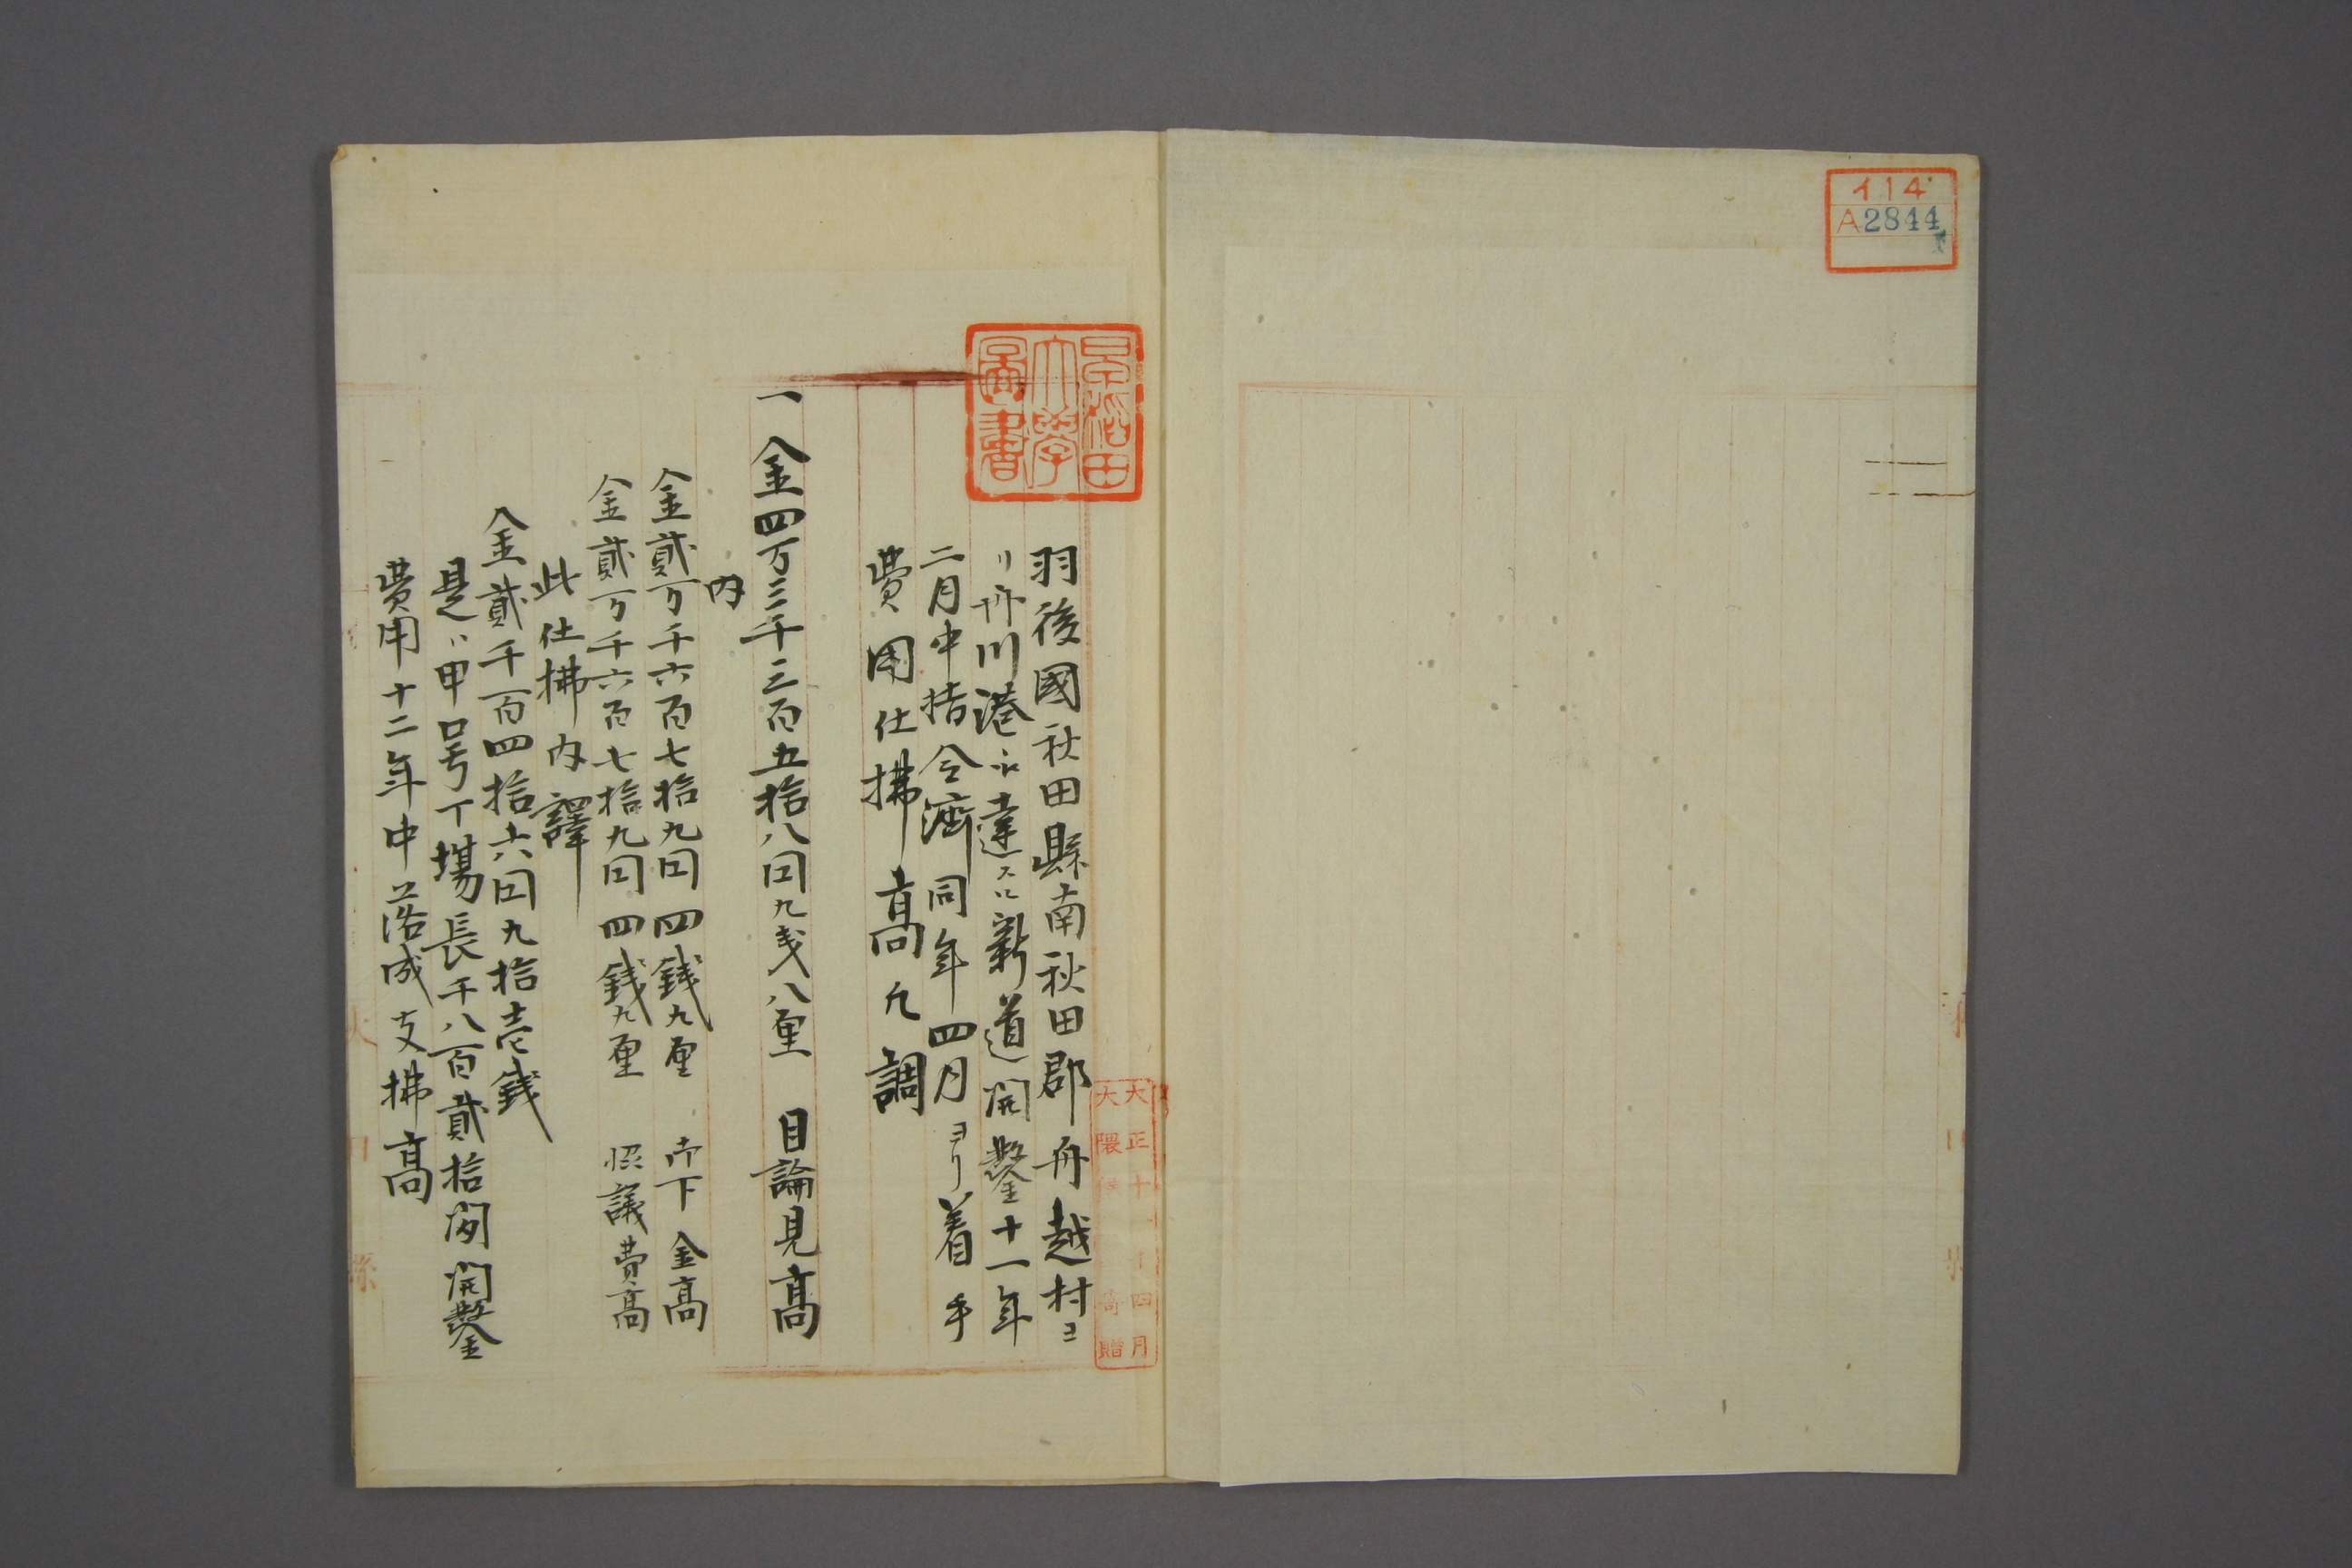 イ14
A2844
早稲田
大學
圖書
大正十一年四月
大隈侯 寄贈
羽後國秋田縣南秋田郡舟越村ヨ
リ舩川港ニ達スル新道開鑿十一年
二月中指令濟同年四月ヨリ着手
費用仕拂高凡調
一金四万三千三百五拾八円九戋八厘 目論見高
内
金貳万千六百七拾九円四銭九厘 御下金高
金貳万千六百七拾九円四銭九厘 協議費高
此仕拂内譯
金貳千百四拾六円九拾壱銭
是ハ甲口号丁場長千八百貳拾間開鑿
費用十二年中落成支拂高